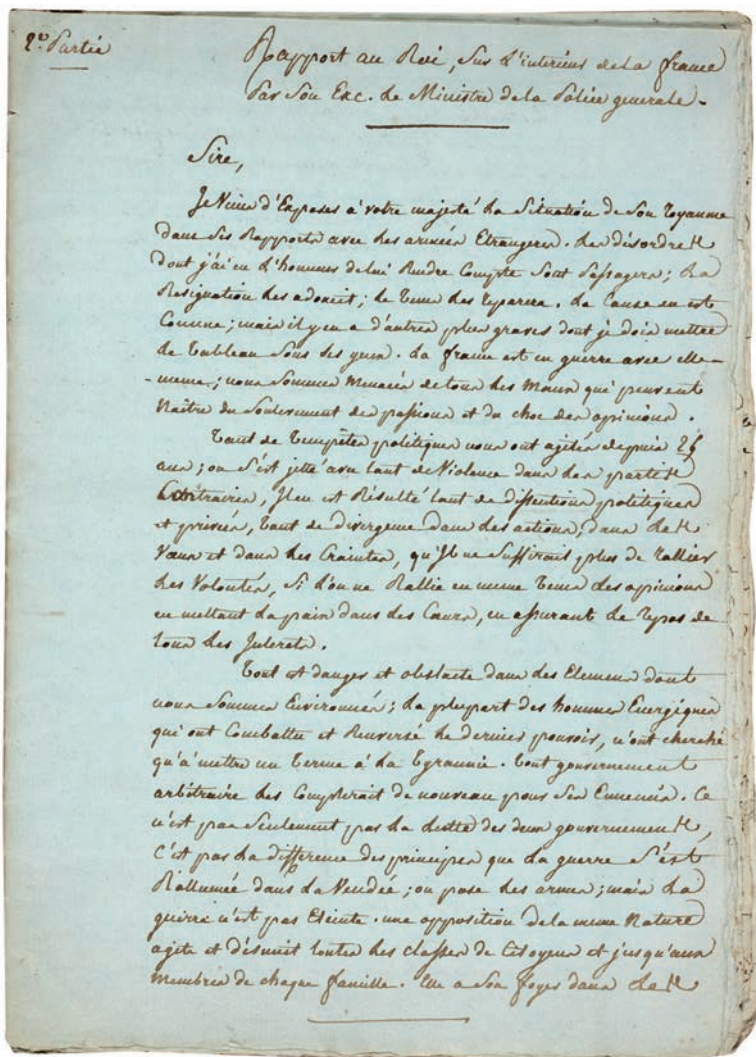 2e. Partie
Rapport au Roi, sur l'interieur de la france
Par Son Exc. le Ministre de la Police generale.
Sire,
Je Viens d'Exposer à votre majesté la Situation de Son royaume
dans ses Rapports avec les armées Etrangeres. les désordres
dont j'ai eu l'honneur de lui Rendre Compte Sont passagers; la
Resignation les adoucit; le tems les reparera. la Cause en est
Connue; mais il y en a d'autres plus graves dont je dois mettre
le tableau Sous ses yeux. la france est en guerre avec elle-
-meme; nous Sommes Menacés de tous les Maux qui peuvent
Naître du Soulevement des passions et du choc des opinions.
tant de tempêtes politiques nous ont agités depuis 25
ans; on s'est jetté avec tant de Violence dans des partis
Contraires, Il en est Résulté tant de dissentions politiques
et privées, tant de divergence dans les actions, dans les
Vœux et dans les Craintes, qu'Il ne Suffirait plus de rallier
les Volontés, Si l'on ne Rallie en meme tems les opinions
en mettant la paix dans les Cœurs, en assurant le repos de
tous les Interets.
tout est danger et obstacle dans les Elemens dont
nous Sommes Environnés; la plupart des hommes Energiques
qui ont Combattu et Renversé le dernier pouvoir, n'ont cherché
qu'à mettre un terme à la tyrannie. tout gouvernement
arbitraire les Compterait de nouveau pour Ses Ennemis. Ce
n'est pas Seulement par la lutte des deux gouvernements,
C'est par la difference des principes que la guerre S'est
Rallumée dans la Vendée; on pose les armes; mais la
guerre n'est pas Eteinte. une opposition de la meme Nature
agite et désunit toutes les classes de Citoyens et jusqu'aux
Membres de chaque famille. Elle a Son foyer dans les